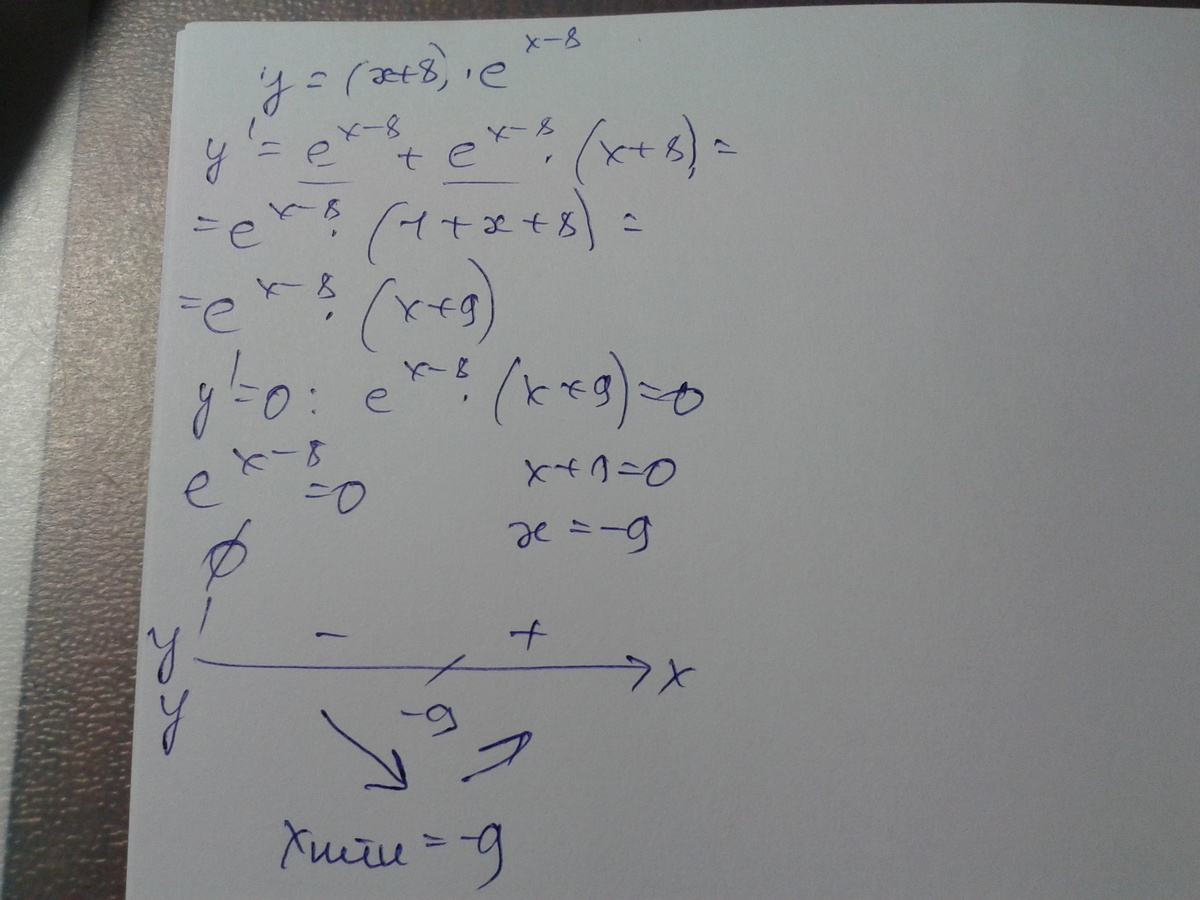 y = (x+8) · e^{x-8}
y' = e^{x-8} + e^{x-8} · (x+8) =
= e^{x-8} · (1+x+8) =
= e^{x-8} · (x+9)
y'=0: e^{x-8} · (x+9)=0
e^{x-8} =0 x+9=0
∅ x = -9
y' - + x
y -9
xmin = -9